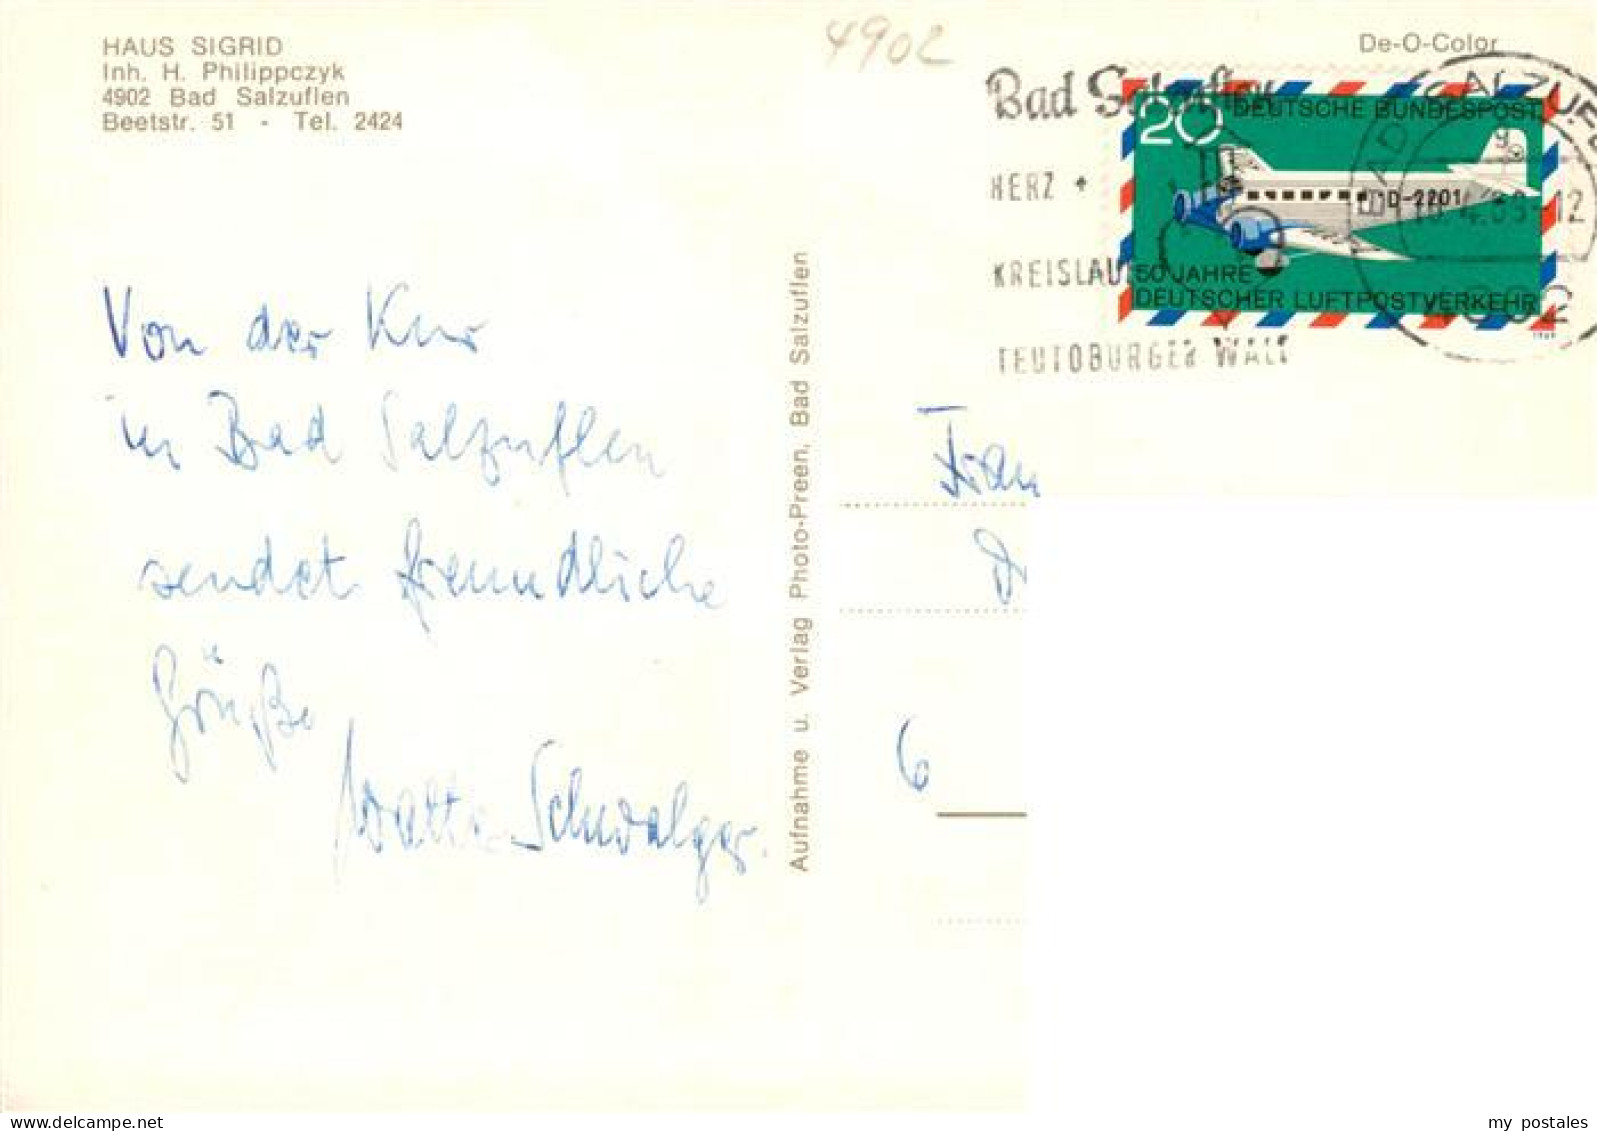 HAUS SIGRID
Inh. H. Philippczyk
4902 Bad Salzuflen
Beetstr. 51 - Tel. 2424
4902
De-O-Color
Bad Salzuflen
HERZ +
KREISLAUF
TEUTOBURGER WALD
BAD SALZUFLEN
4902
20 DEUTSCHE BUNDESPOST
D-2201
50 JAHRE
DEUTSCHER LUFTPOSTVERKEHR
1969
Von der Kur
in Bad Salzuflen
sendet freundliche
Grüße
Walter Schwalger.
Aufnahme u. Verlag Photo-Preen, Bad Salzuflen
6
my postales